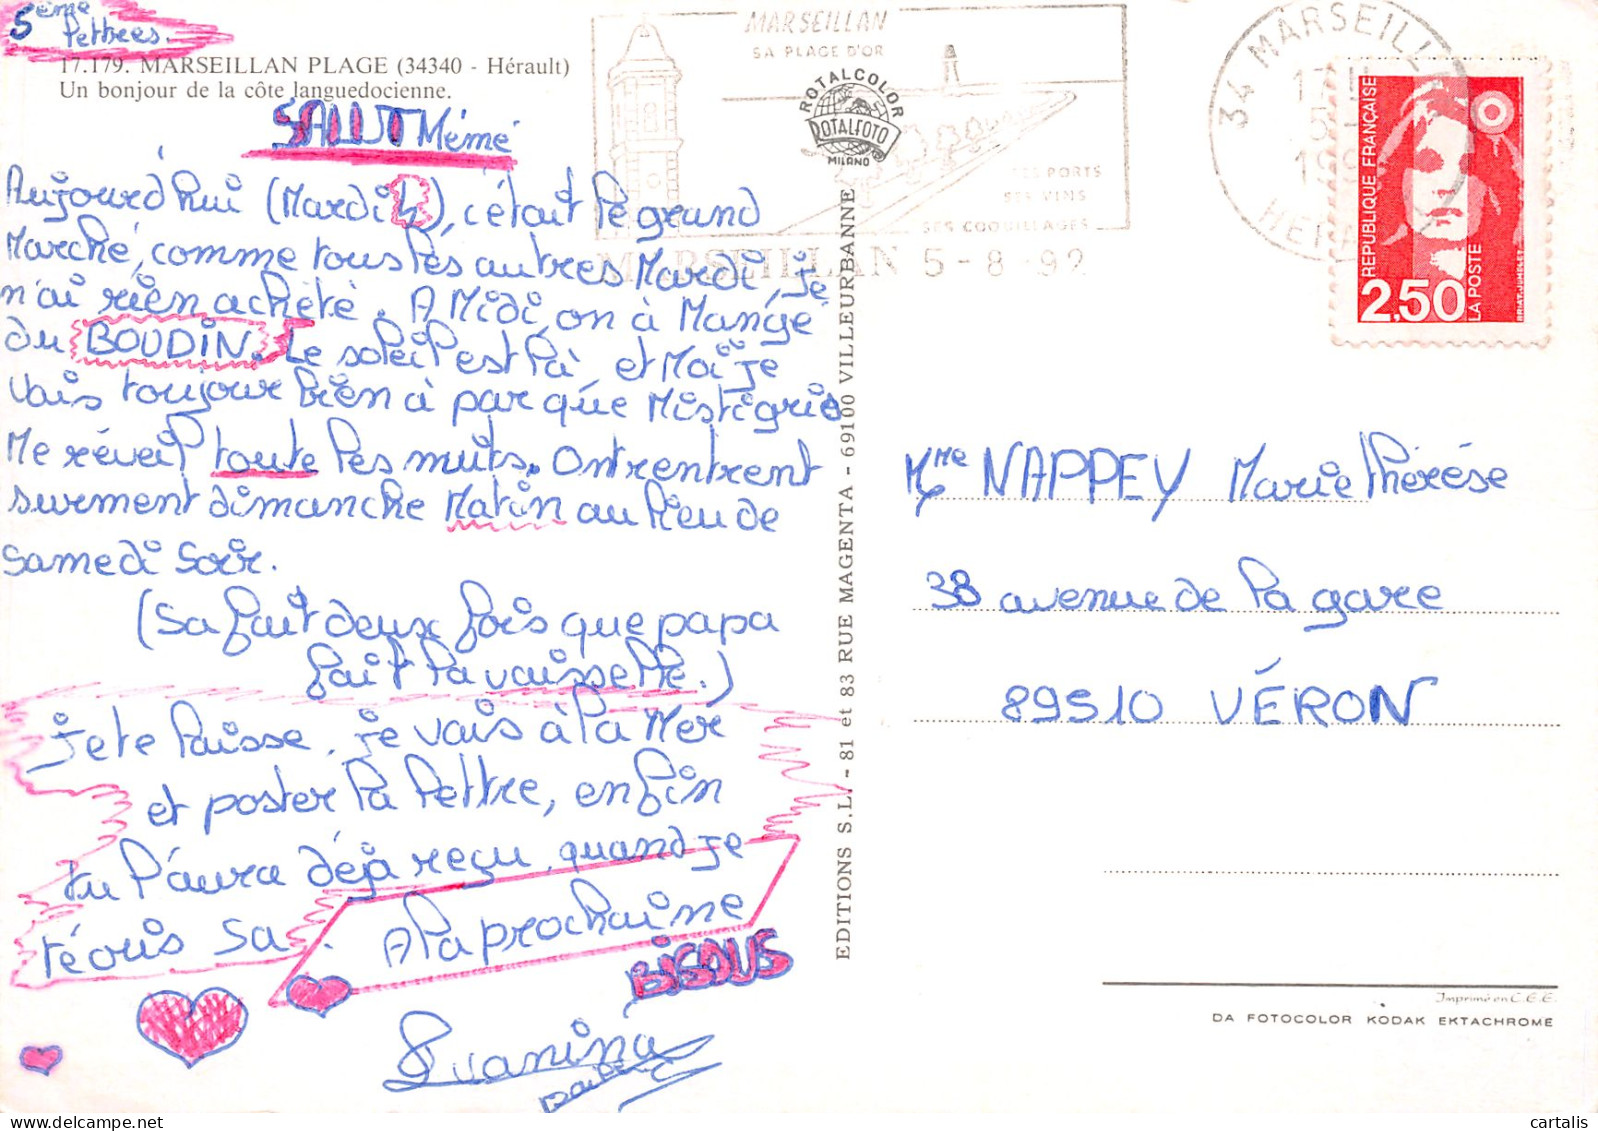 5ème
lettres.
17.179. MARSEILLAN PLAGE (34340 - Hérault)
Un bonjour de la côte languedocienne.
SALUT Mémé
Aujourd'hui (Mardi 4), c'était le grand
Marché, comme tous les autres Mardi, je
n'ai rien achété. A Midi, on à Mangé
du BOUDIN. Le soleil est là, et Moi je
vais toujour bien à par que Mistigris
Me réveil toute les nuits. On trentrent
surement dimanche Matin au lieu de
samedi soir.
(Sa fait deux fois que papa
fait la vaisselle.)
je te laisse, je vais à la Mer
et poster la lettre, enfin
tu l'aura déjà reçu, quand je
técris sa. A la prochaine
BISOUS
Vanina
MARSEILLAN
SA PLAGE D'OR
ROTALCOLOR
ROTALFOTO
MILANO
SES PORTS
SES VINS
SES COQUILLAGES
MARSEILLAN 5-8-92
34 MARSEILL
REPUBLIQUE FRANÇAISE
2,50
LA POSTE
BRIAT.JUMELET
EDITIONS S.L. - 81 et 83 RUE MAGENTA - 69100 VILLEURBANNE
Mme NAPPEY Marie Thérèse
38 avenue de la gare
89510 VÉRON
Imprimé en C.E.E.
DA FOTOCOLOR KODAK EKTACHROME
cartalis
delcampe.net